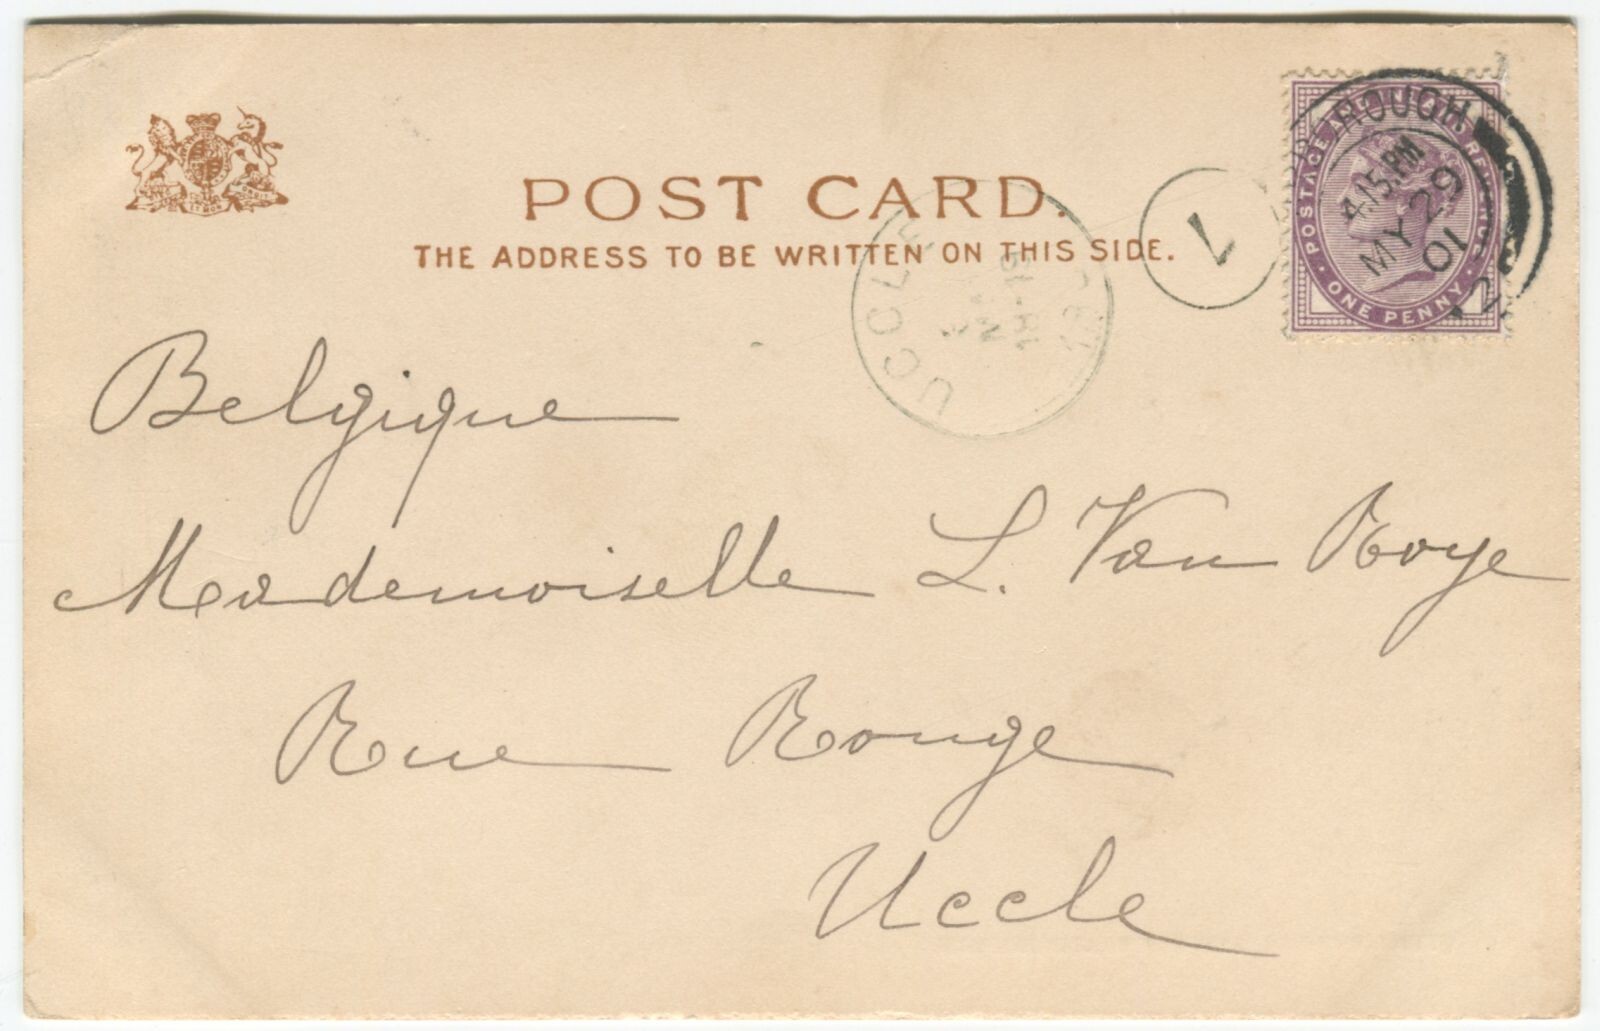 POST CARD.
THE ADDRESS TO BE WRITTEN ON THIS SIDE.
POSTAGE AND INLAND REVENUE
ONE PENNY
ROUGH
4.15.PM
MY 29
01
2
UCCLE
1
Belgique
Mademoiselle L. Van Roye
Rue Rouge
Uccle